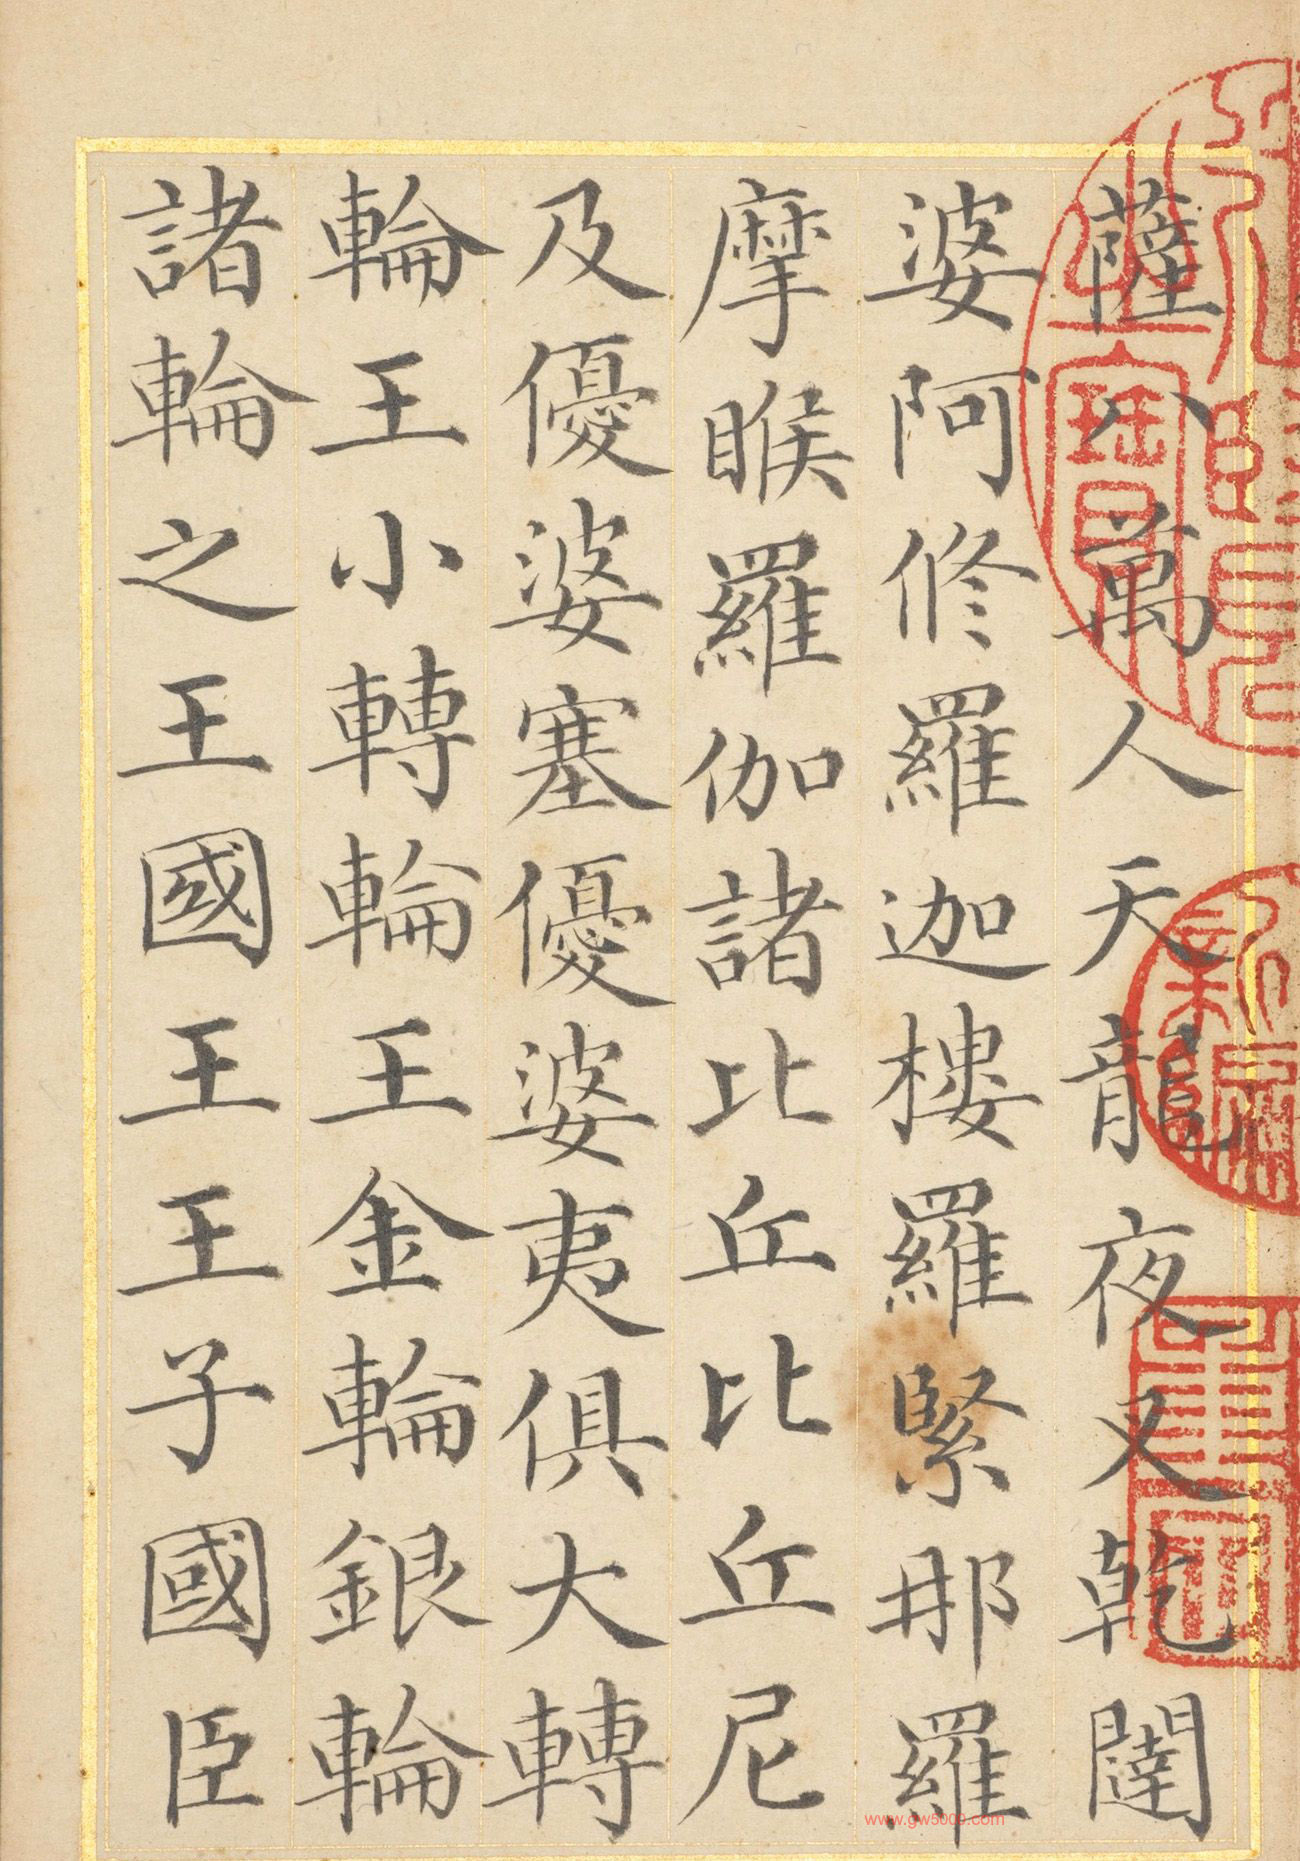 薩八萬人天龍夜叉乾闥
婆阿修羅迦樓羅緊那羅
摩睺羅伽諸比丘比丘尼
及優婆塞優婆夷俱大轉
輪王小轉輪王金輪銀輪
諸輪之王國王王子國臣
www.gw5000.com